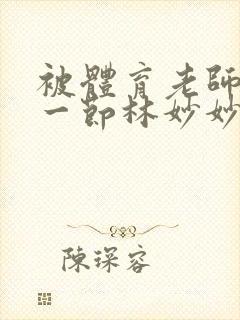 被體育老師
一節林妙妙
陳琛容